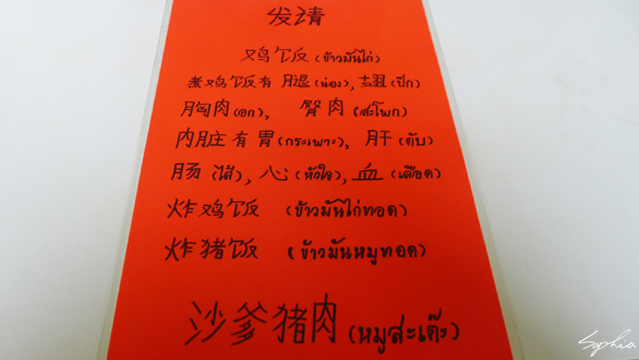 发请
鸡饭 (ข้าวมันไก่)
煮鸡饭有 腿 (น่อง), 翅 (ปีก)
胸肉 (อก), 臀肉 (สะโพก)
内脏有 胃 (กระเพาะ), 肝 (ตับ)
肠 (ไส้), 心 (หัวใจ), 血 (เลือด)
炸鸡饭 (ข้าวมันไก่ทอด)
炸猪饭 (ข้าวมันหมูทอด)
沙爹猪肉 (หมูสะเต๊ะ)
Sophia